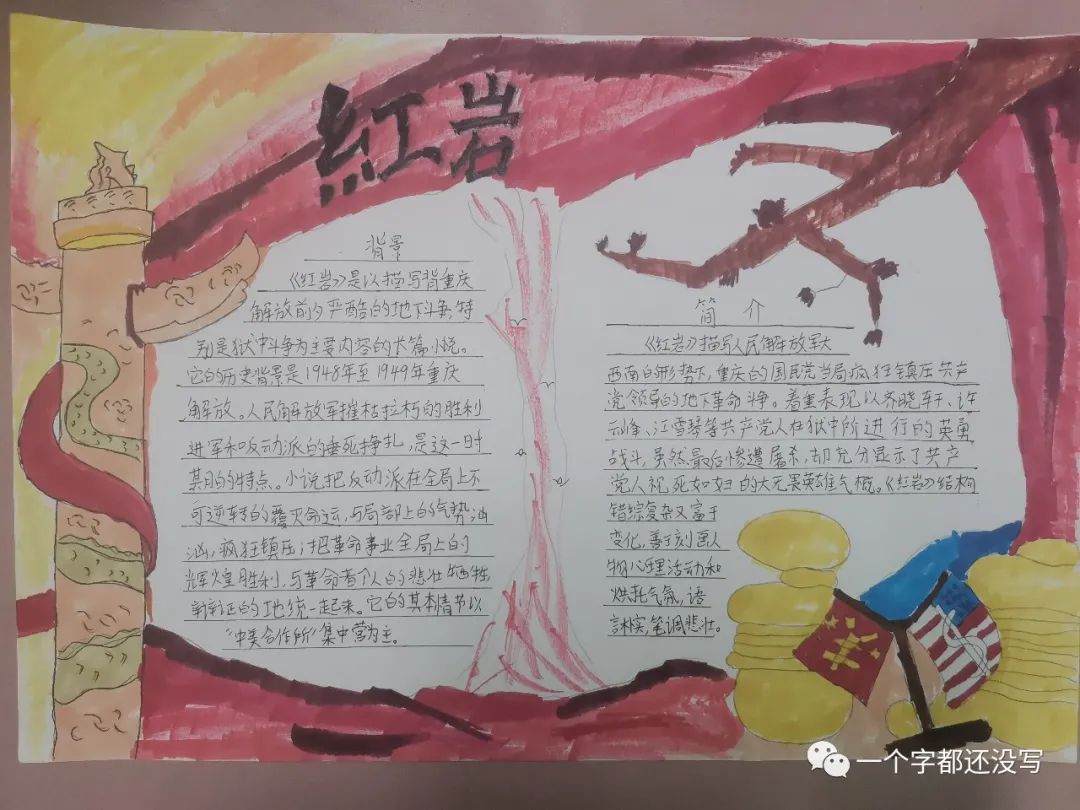 紅岩
背景
《红岩》是以描写背重庆
解放前夕严酷的地下斗争,特
别是狱中斗争为主要内容的长篇小说。
它的历史背景是1948年至1949年重庆
解放。人民解放军摧枯拉朽的胜利
进军和反动派的垂死挣扎,是这一时
其月的特点。小说把反动派在全局上不
可逆转的覆灭命运,与局部上的气势汹
汹,疯狂镇压;把革命事业全局上的
辉煌胜利,与革命者个人的悲壮牺牲,
辩证的地统一起来。它的其本情节以
"中美合作所"集中营为主。
简介
《红岩》描写人民解放军大
西南的形势下,重庆的国民党当局疯狂镇压共产
党领导的地下革命斗争。着重表现以齐晓轩、许
云峰、江雪琴等共产党人在狱中所进行的英勇
战斗,虽然最后惨遭屠杀,却充分显示了共产
党人视死如归的大无畏英雄气概。《红岩》结构
错综复杂又富于
变化,善于刻画人
物心理活动和
烘托气氛,语
言朴实,笔调悲壮。
一个字都还没写